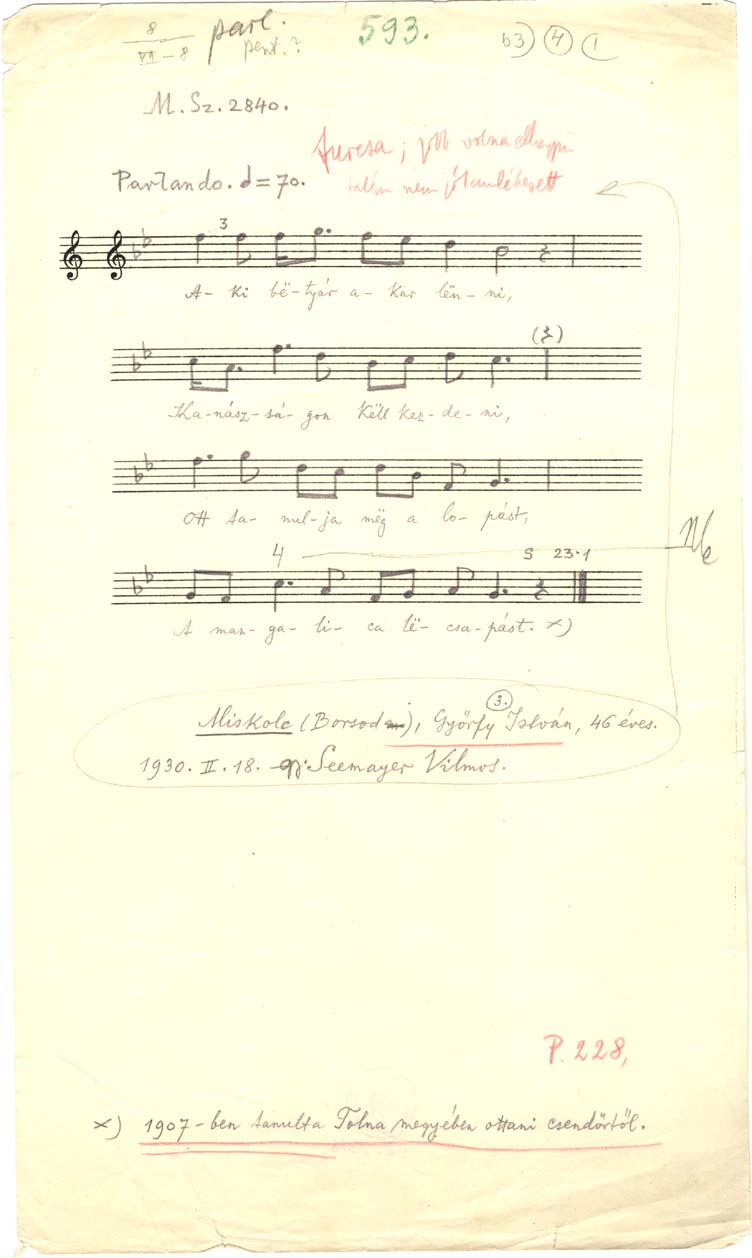 8 parl. 593. b3) 4 1
VI-8 pent.?
M. Sz. 2840.
furcsa; jobb volna elhagyni
Parlando. = 70. talán nem jól emlékezett
3
A- ki bë-tyár a- kar lën- ni,
Ka-nász-sá- gon këll kez-de- ni,
Ott ta- nul-ja mëg a lo- pást,
4 S 23.1
A man-ga- li- ca lë- csa-pást. x)
3.
Miskolc (Borsod), Győrfy István, 46 éves.
1930. II. 18. gy: Seemayer Vilmos.
P. 228,
x) 1907-ben tanulta Tolna megyében ottani csendőrtől.